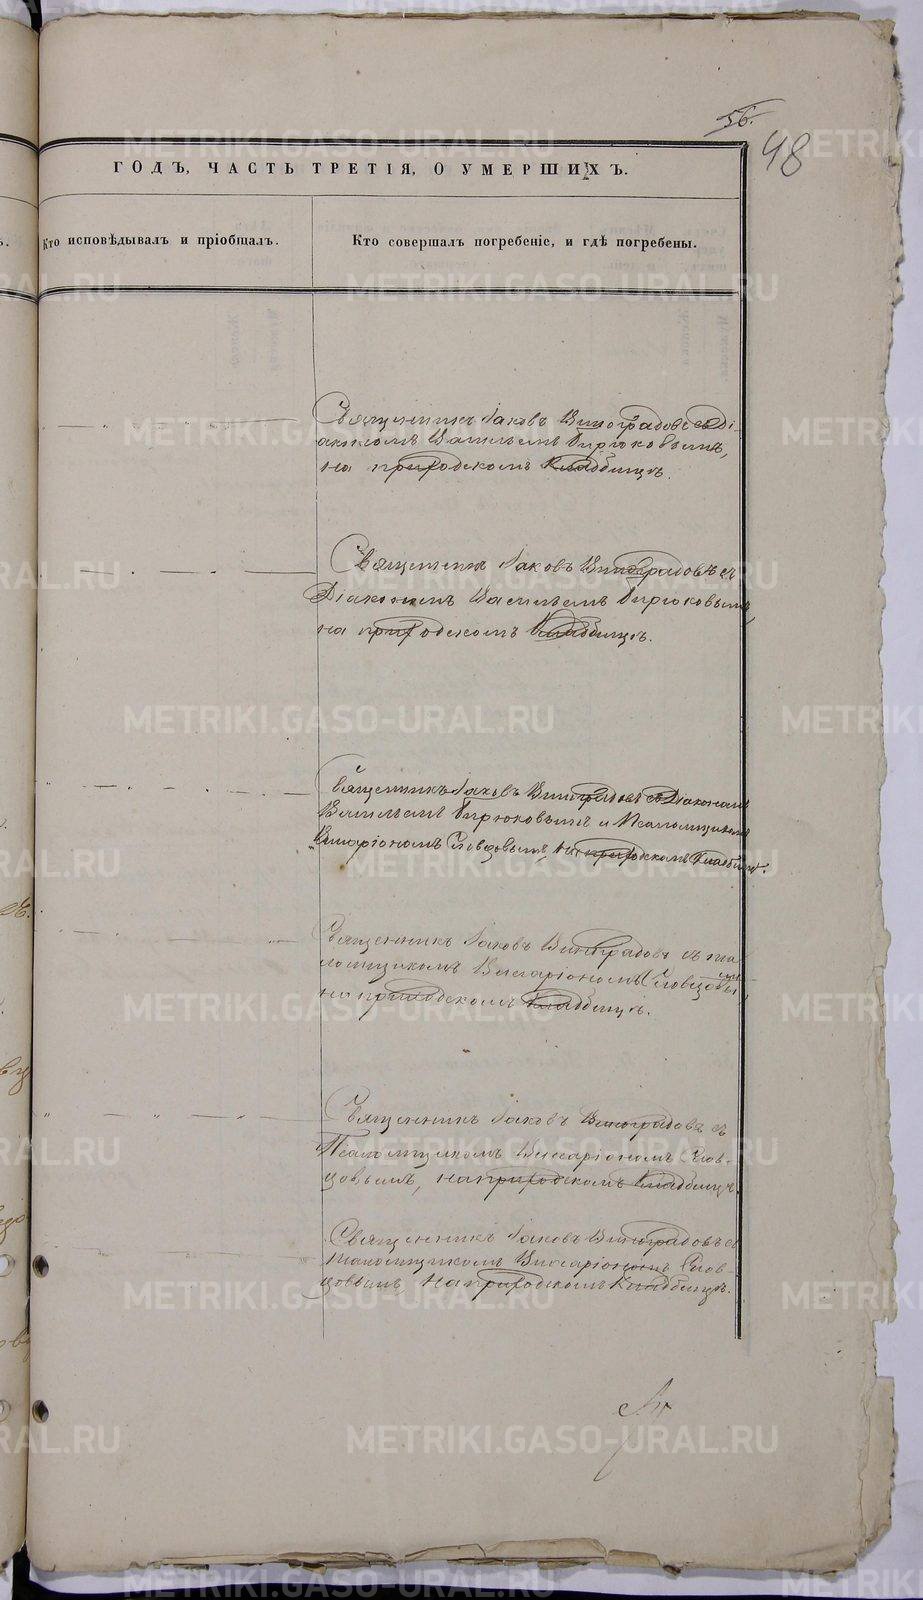 56.
48
ГОДЪ, ЧАСТЬ ТРЕТІЯ, О УМЕРШИХЪ.
Кто исповѣдывалъ и пріобщалъ.
Кто совершалъ погребеніе, и гдѣ погребены.
Священникъ Іаковъ Виноградовъ съ Ді-
акономъ Васильемъ Бирюковымъ,
на приходскомъ кладбищѣ.
Священникъ Іаковъ Виноградовъ съ
Діакономъ Васильемъ Бирюковымъ,
на приходскомъ кладбищѣ.
Священникъ Іаковъ Виноградовъ съ Діакономъ
Васильемъ Бирюковымъ и Псаломщикомъ
Виссаріономъ Словцовымъ, на приходскомъ кладбищѣ.
Священникъ Іаковъ Виноградовъ съ пса
ломщикомъ Виссаріономъ Словцовымъ,
на приходскомъ кладбищѣ.
Священникъ Іаковъ Виноградовъ съ
Псаломщикомъ Виссаріономъ Слов-
цовымъ, на приходскомъ кладбищѣ.
Священникъ Іаковъ Виноградовъ съ
псаломщикомъ Виссаріономъ Слов-
цовымъ на приходскомъ кладбищѣ.
METRIKI.GASO-URAL.RU